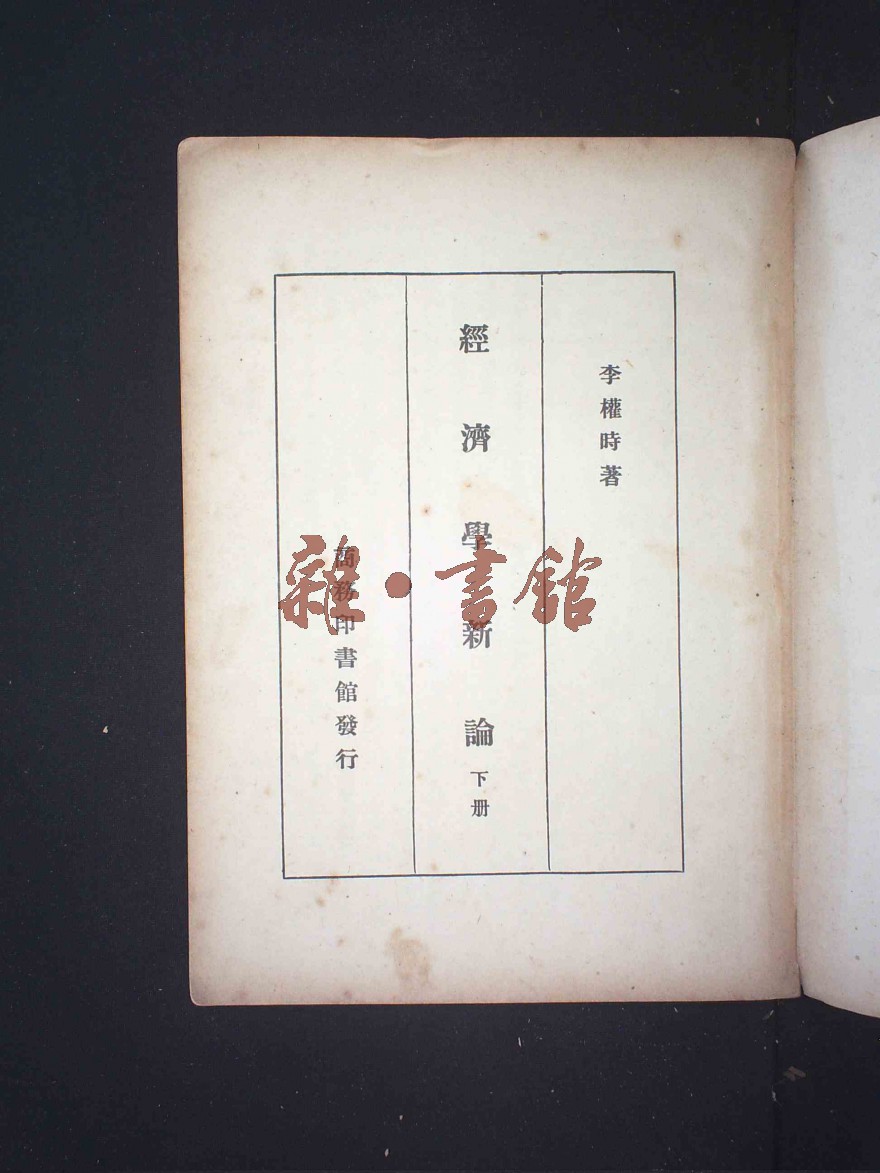 李權時著
經濟學新論 下册
商務印書館發行
雜·書館